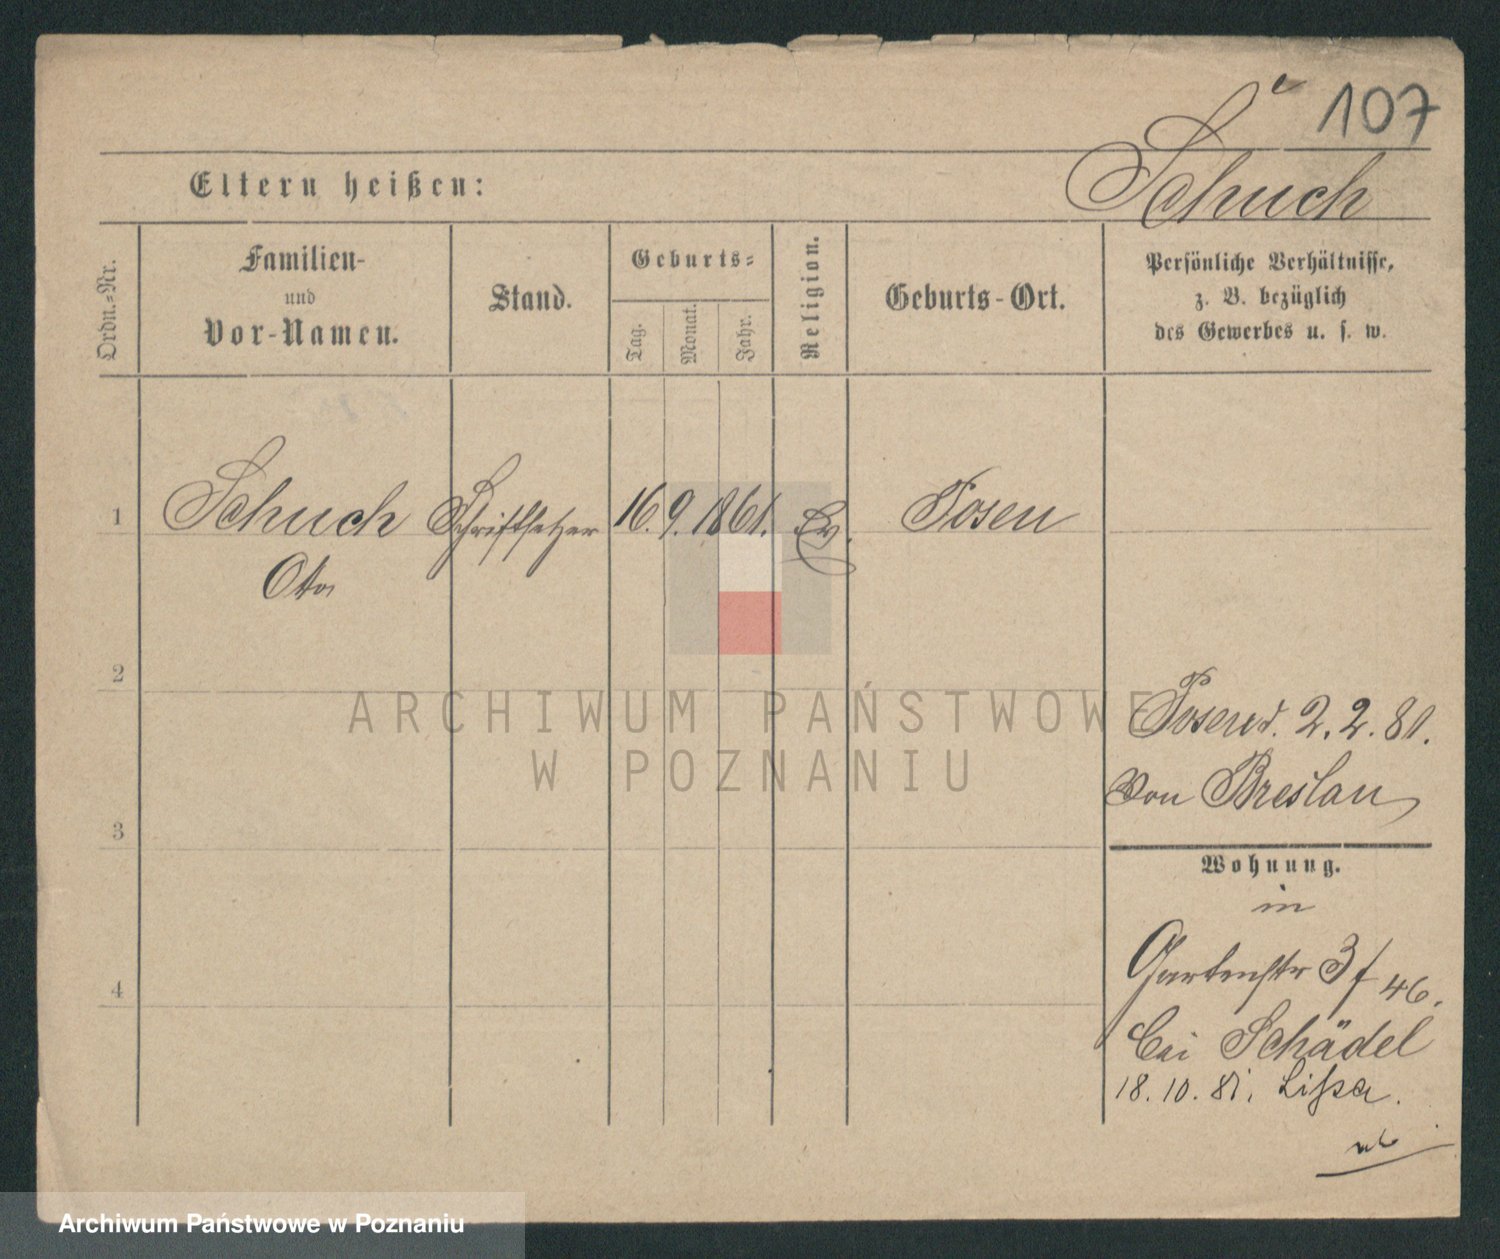 107
Schuch
Eltern heißen:
Ordn.-Nr.
Familien-
und
Vor-Namen.
Stand.
Geburts-
Tag.
Monat.
Jahr.
Religion.
Geburts-Ort.
Persönliche Verhältnisse,
z. B. bezüglich
des Gewerbes u. s. w.
1 Schuch Schriftsetzer 16. 9. 1861. Ev. Posen
Otto
2
Posen d. 2. 2. 81.
von Breslau
3
Wohnung.
in
Gartenstr 3f 46.
4
bei Schädel
18. 10. 81. Lissa.
ARCHIWUM PAŃSTWOWE
W POZNANIU
Archiwum Państwowe w Poznaniu